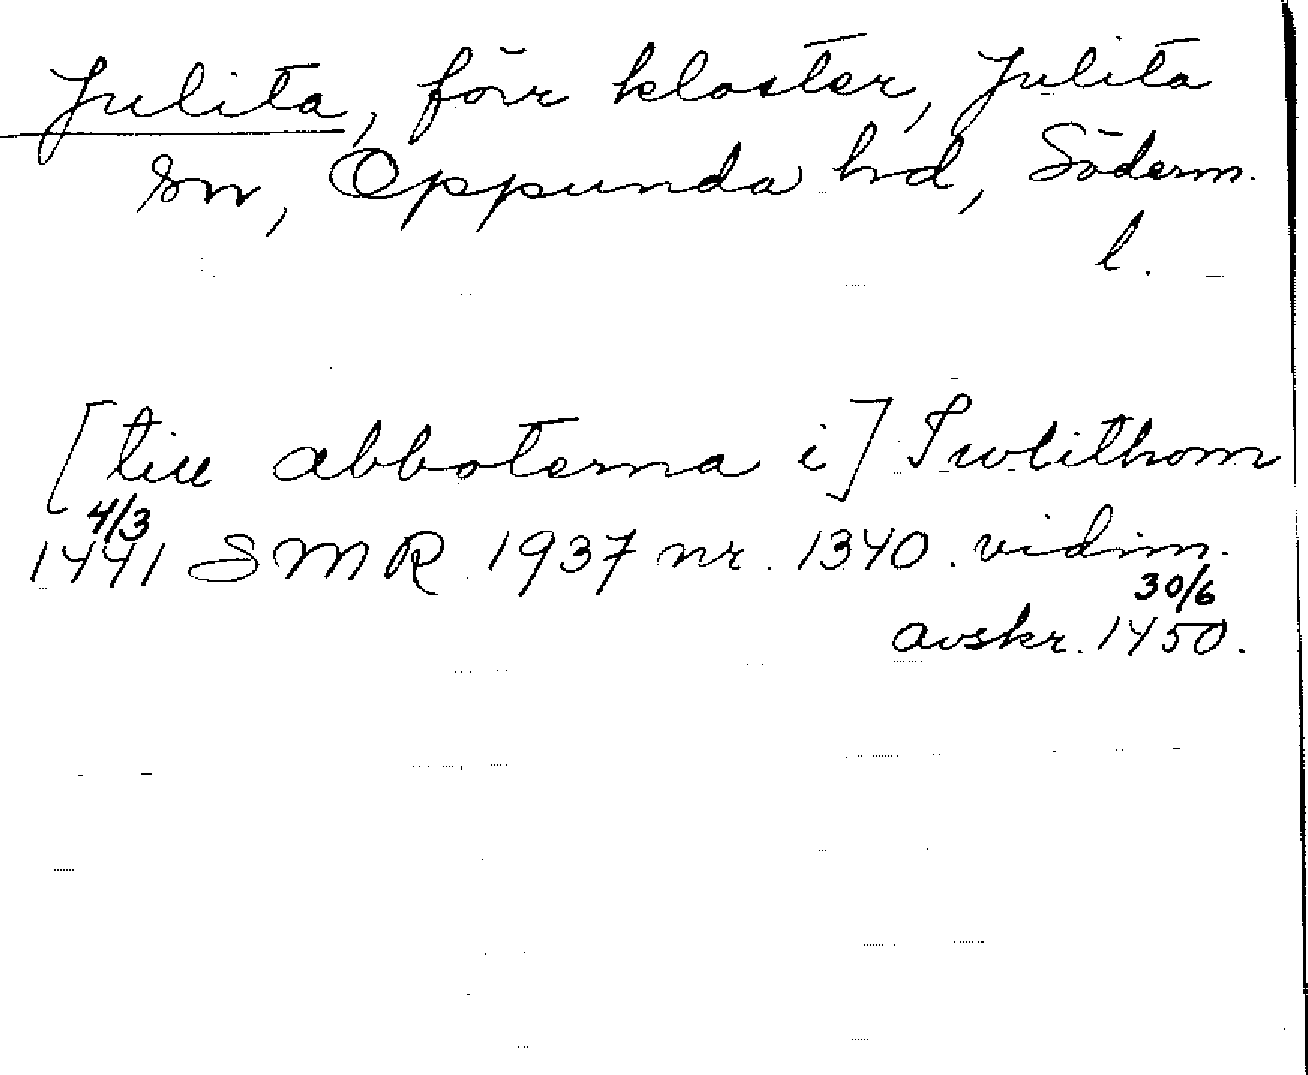 Julita, förr kloster, Julita
sn, Oppunda hd, Söderm.
l.
[till abboterna i] Iwlithom
4/3
1441 SMR 1937 nr. 1340. vidim.
30/6
avskr. 1450.